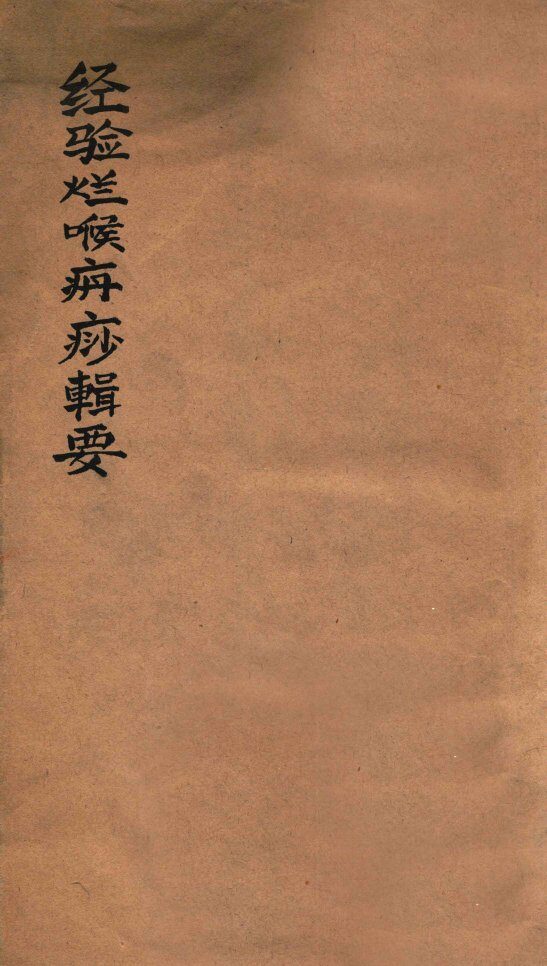 经验烂喉痧痧輯要